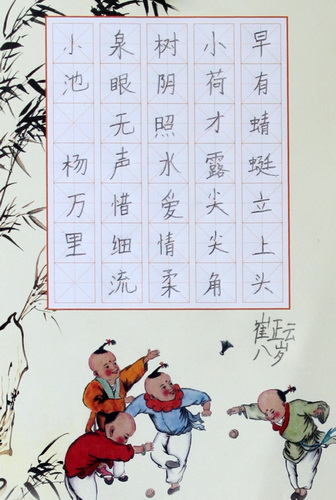 小池 杨万里
泉眼无声惜细流
树阴照水爱情柔
小荷才露尖尖角
早有蜻蜓立上头
崔正云
八岁